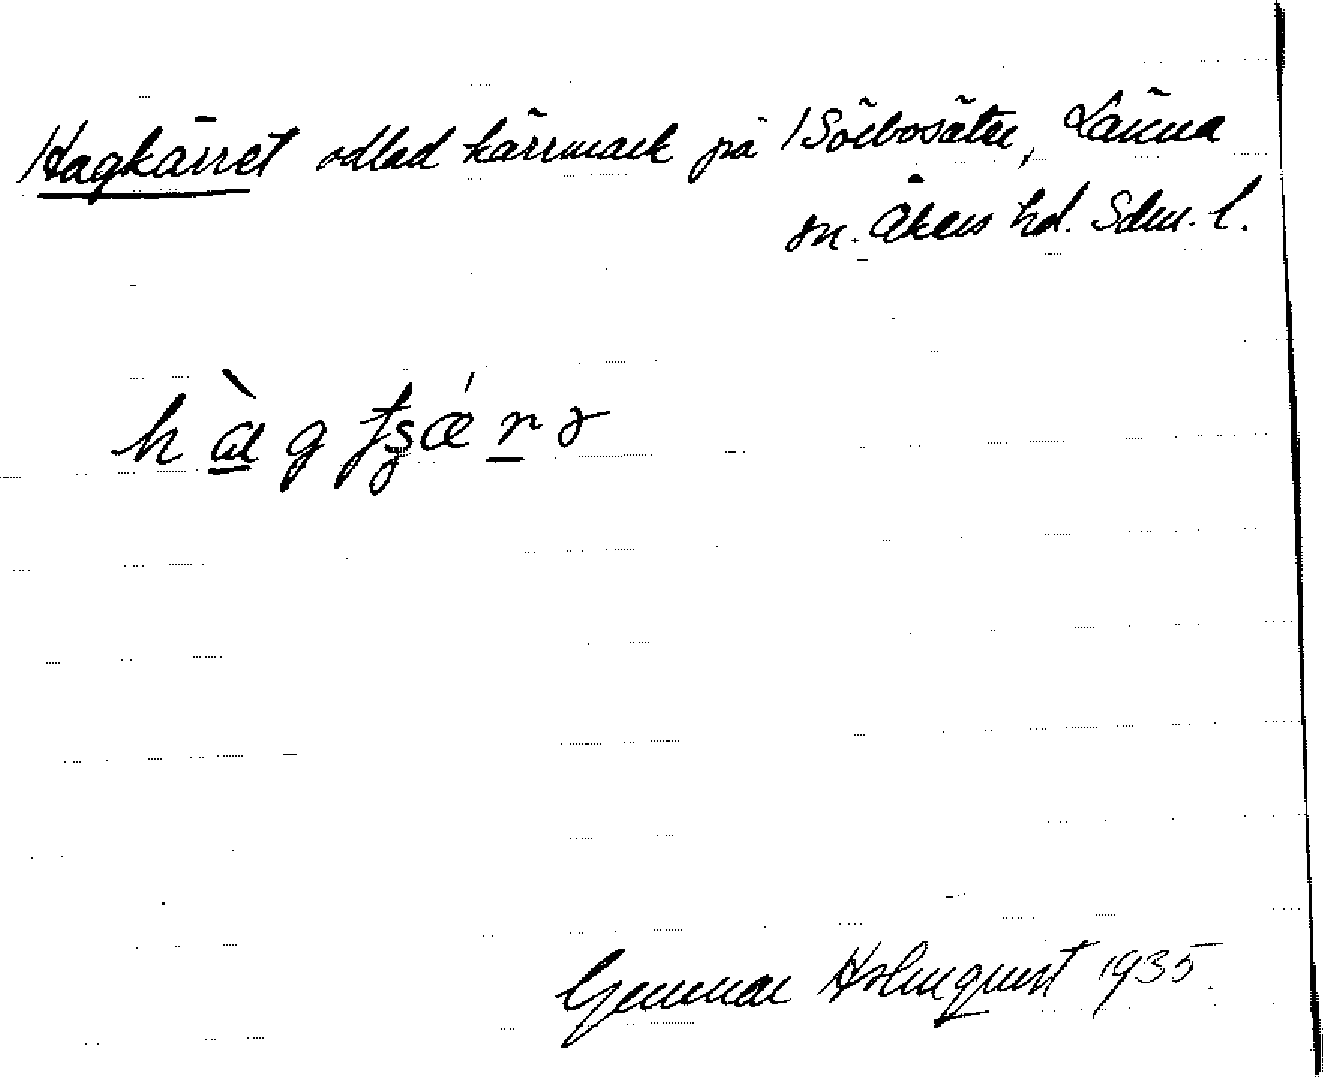 Hagkärret odlad kärrmark på Sörbosätra, Länna
sn. Åkers hd. Sdm. l.
Gunnar Holmquist 1935.